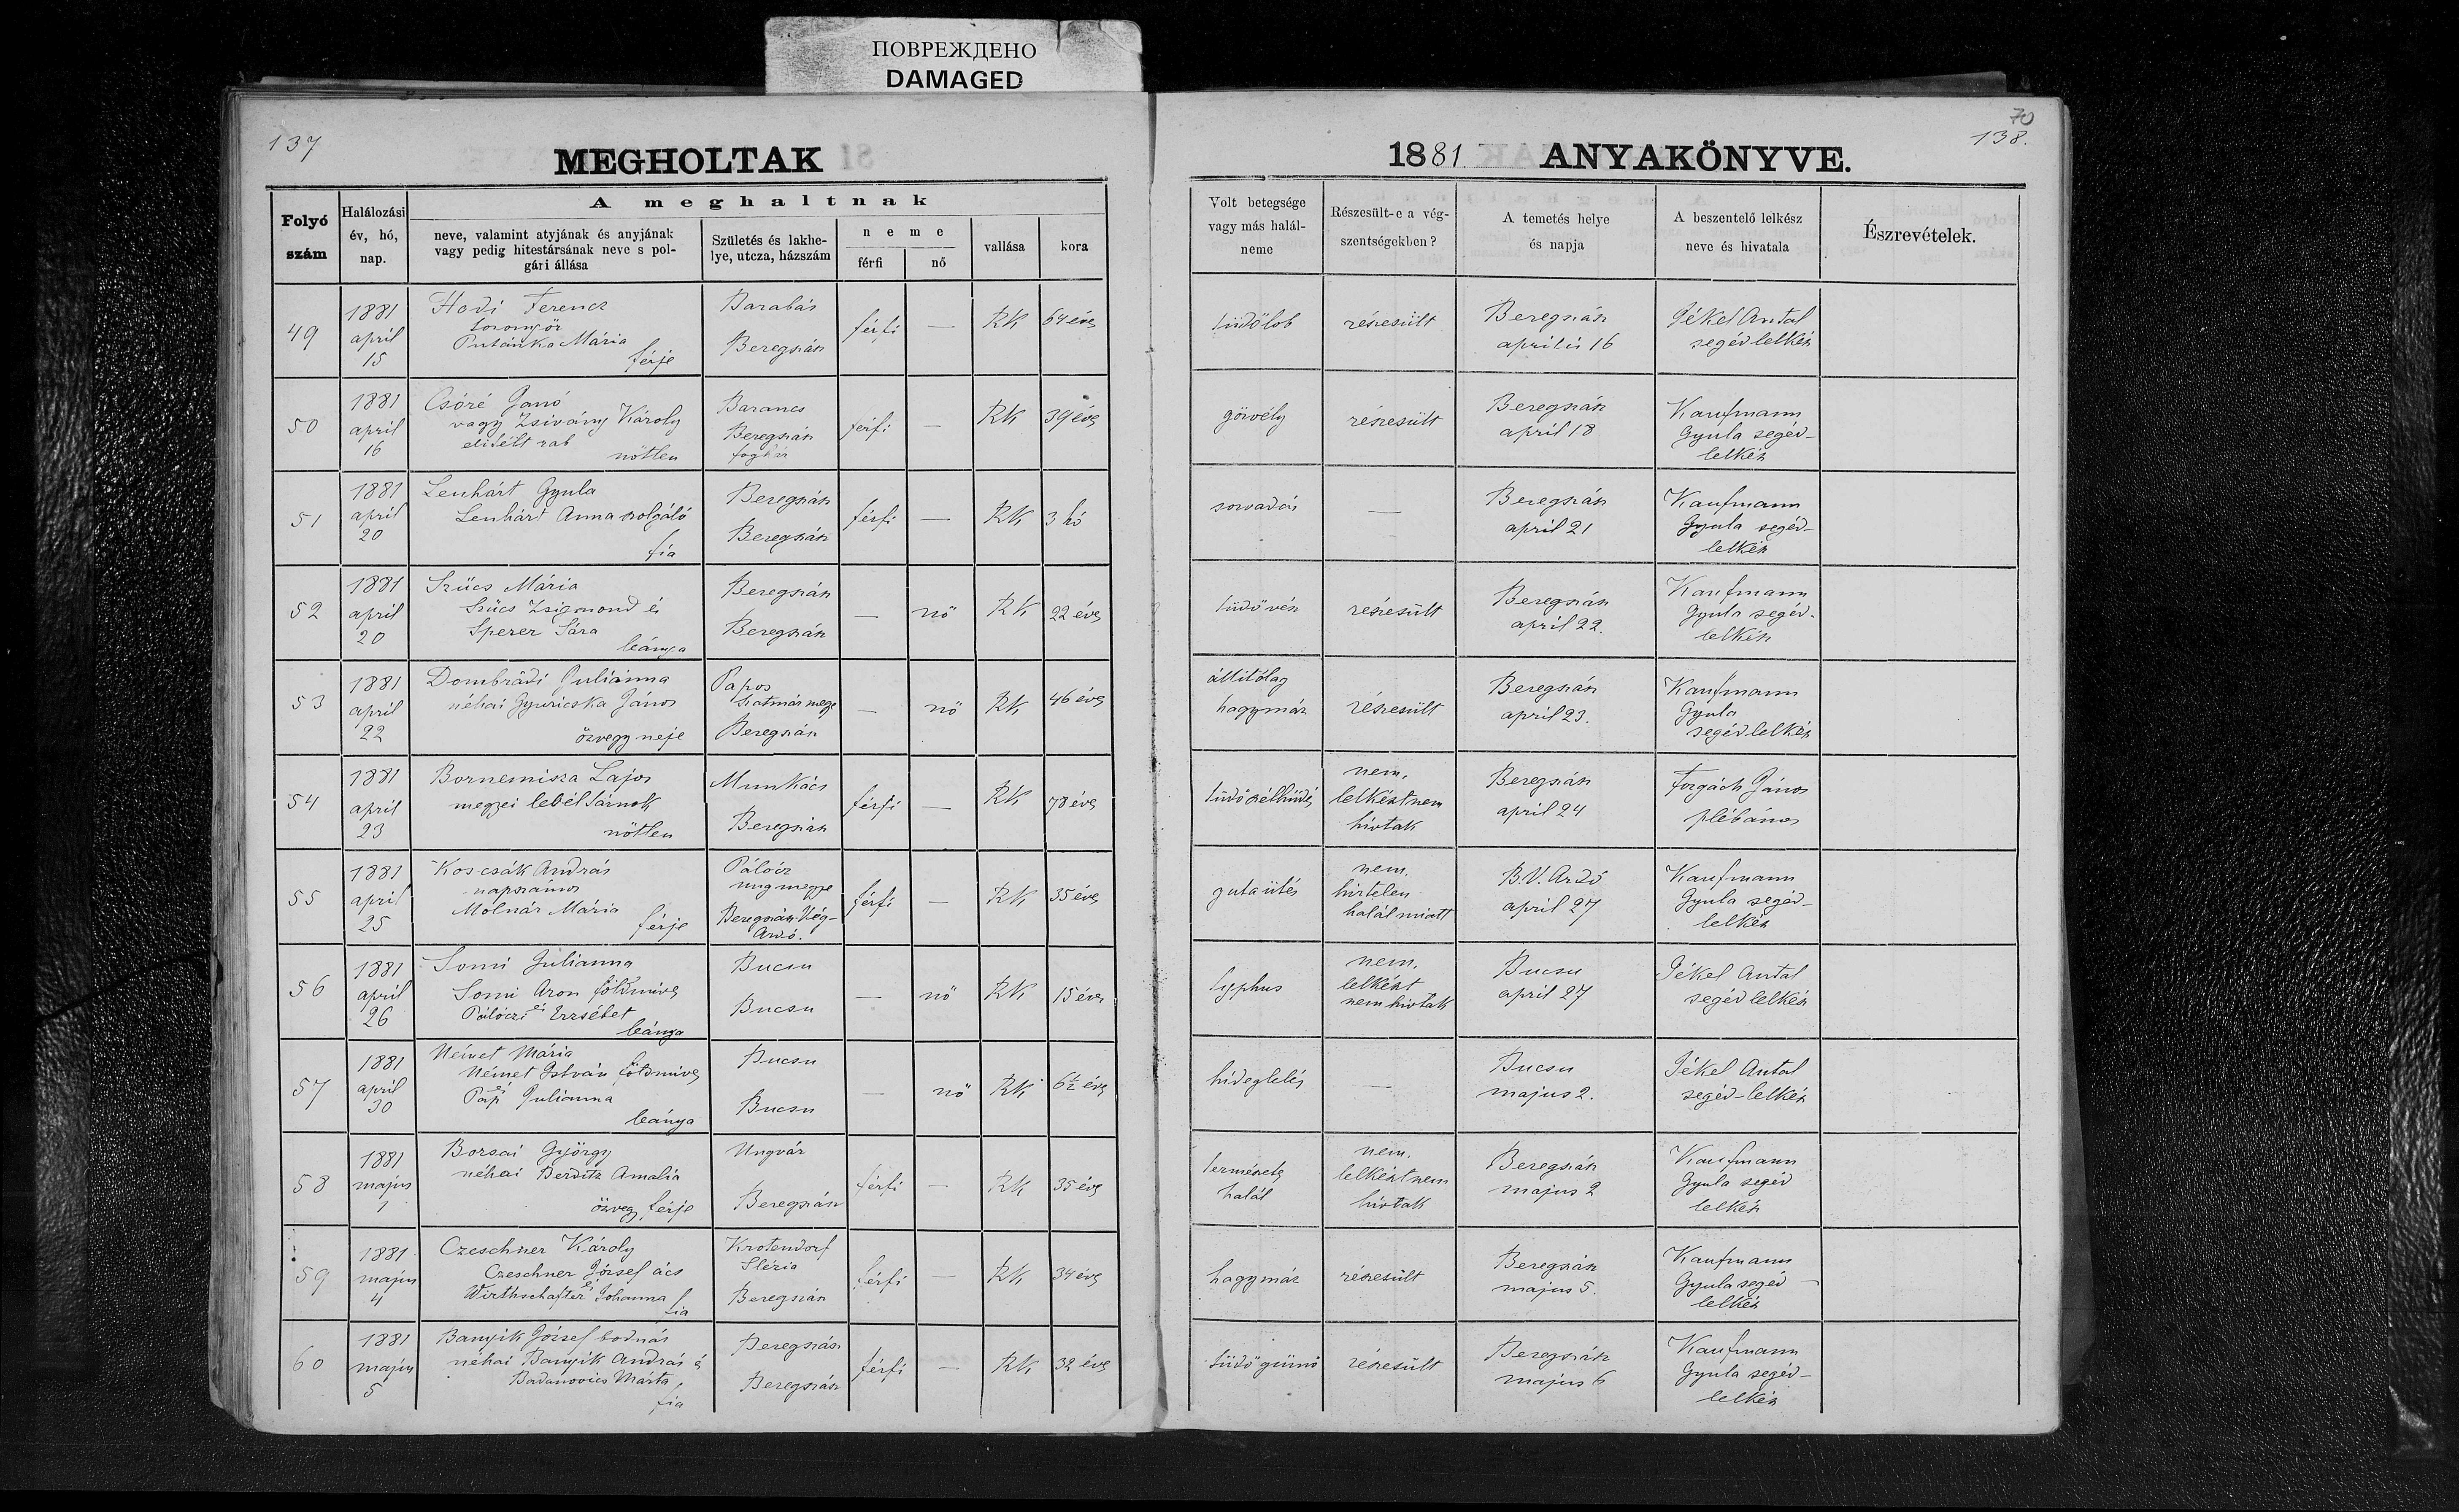 ПОВРЕЖДЕНО
DAMAGED
137
MEGHOLTAK
Folyó szám
Halálozási év, hó, nap.
A meghaltnak
neve, valamint atyjának és anyjának vagy pedig hitestársának neve s polgári állása
Születés és lakhelye, utcza, házszám
neme
férfi
nő
vallása
kora
70
138.
1881. ANYAKÖNYVE.
Volt betegsége vagy más halálneme
Részesült-e a végszentségekben?
A temetés helye és napja
A beszentelő lelkész neve és hivatala
Észrevételek.
49
1881 april 15
Hodi Ferencz
Mária
férje
Barabás
Beregszász
férfi
—
RK
64 éves
tüdőlob
részesült
Beregszász
április 16
Jékel Antal
segéd lelkész
50
1881 april 16
Csóré Janó
vagy Zsivány Károly
elitélt rab
nőtlen
Barancs
Beregszász
fogház
férfi
—
RK
39 éves
görvély
részesült
Beregszász
april 18
Kaufmann
Gyula segéd-
lelkész
51
1881 april 20
Lenhárt Gyula
Lenhárt Anna szolgáló
fia
Beregszász
Beregszász
férfi
—
RK
3 hó
sorvadás
—
Beregszász
april 21
Kaufmann
Gyula segéd-
lelkész
52
1881 april 20
Szűcs Mária
Szűcs Zsigmond és
Sperer Sára
leánya
Beregszász
Beregszász
—
nő
RK
22 éves
tüdővész
részesült
Beregszász
april 22.
Kaufmann
Gyula segéd-
lelkész
53
1881 april 22
Dombrádi Julianna
néhai Gyuricska János
özvegy neje
Papos
Szatmár megye
Beregszász
—
nő
RK
46 éves
állitólag
hagymáz
részesült
Beregszász
april 23.
Kaufmann
Gyula
segéd lelkész
54
1881 april 23
Bornemisza Lajos
megyei levéltárnok
nőtlen
Munkács
Beregszász
férfi
—
RK
78 éves
tüdőszélhüdés
nem,
lelkészt nem
hivtak
Beregszász
april 24
Forgách János
plébános
55
1881 april 25
Koscsák András
napszámos
Molnár Mária
férje
Pálócz
ung megye
Beregszász-Vég-
Ardó.
férfi
—
RK
35 éves
guta ütés
nem.
hirtelen
halál miatt
B.V. Ardó
april 27
Kaufmann
Gyula segéd-
lelkész
56
1881 april 26
Somi Julianna
Somi Aron földmives
és
Pálóczi Erzsébet
leánya
Bucsu
Bucsu
—
nő
RK
15 éves
typhus
nem,
lelkészt
nem hivtak
Bucsu
april 27
Jékel Antal
segéd lelkész
57
1881 april 30
Német Mária
Német István földmives
és
Pap Julianna
leánya
Bucsu
Bucsu
—
nő
RK
6½ éves
hideglelés
—
Bucsu
majus 2.
Jékel Antal
segéd-lelkész
58
1881 majus 1
Borsai György
néhai Berditz Amalia
özvegy férje
Ungvár
Beregszász
férfi
—
RK
35 éves
természetes
halál
nem.
lelkészt nem
hivtak
Beregszász
majus 2
Kaufmann
Gyula segéd
lelkész
59
1881 majus 4
Czeschner Károly
Czeschner József ács
és
Wirthschafter Johanna
fia
Krotendorf
Slézia
Beregszász
férfi
—
RK
34 éves
hagymáz
részesült
Beregszász
majus 5.
Kaufmann
Gyula segéd-
lelkész
60
1881 majus 5
Banyik József bodnár
néhai Banyik András és
Bodanovics Márta
fia
Beregszász
Beregszász
férfi
—
RK
32 éves
tüdőgümő
részesült
Beregszász
majus 6
Kaufmann
Gyula segéd-
lelkész